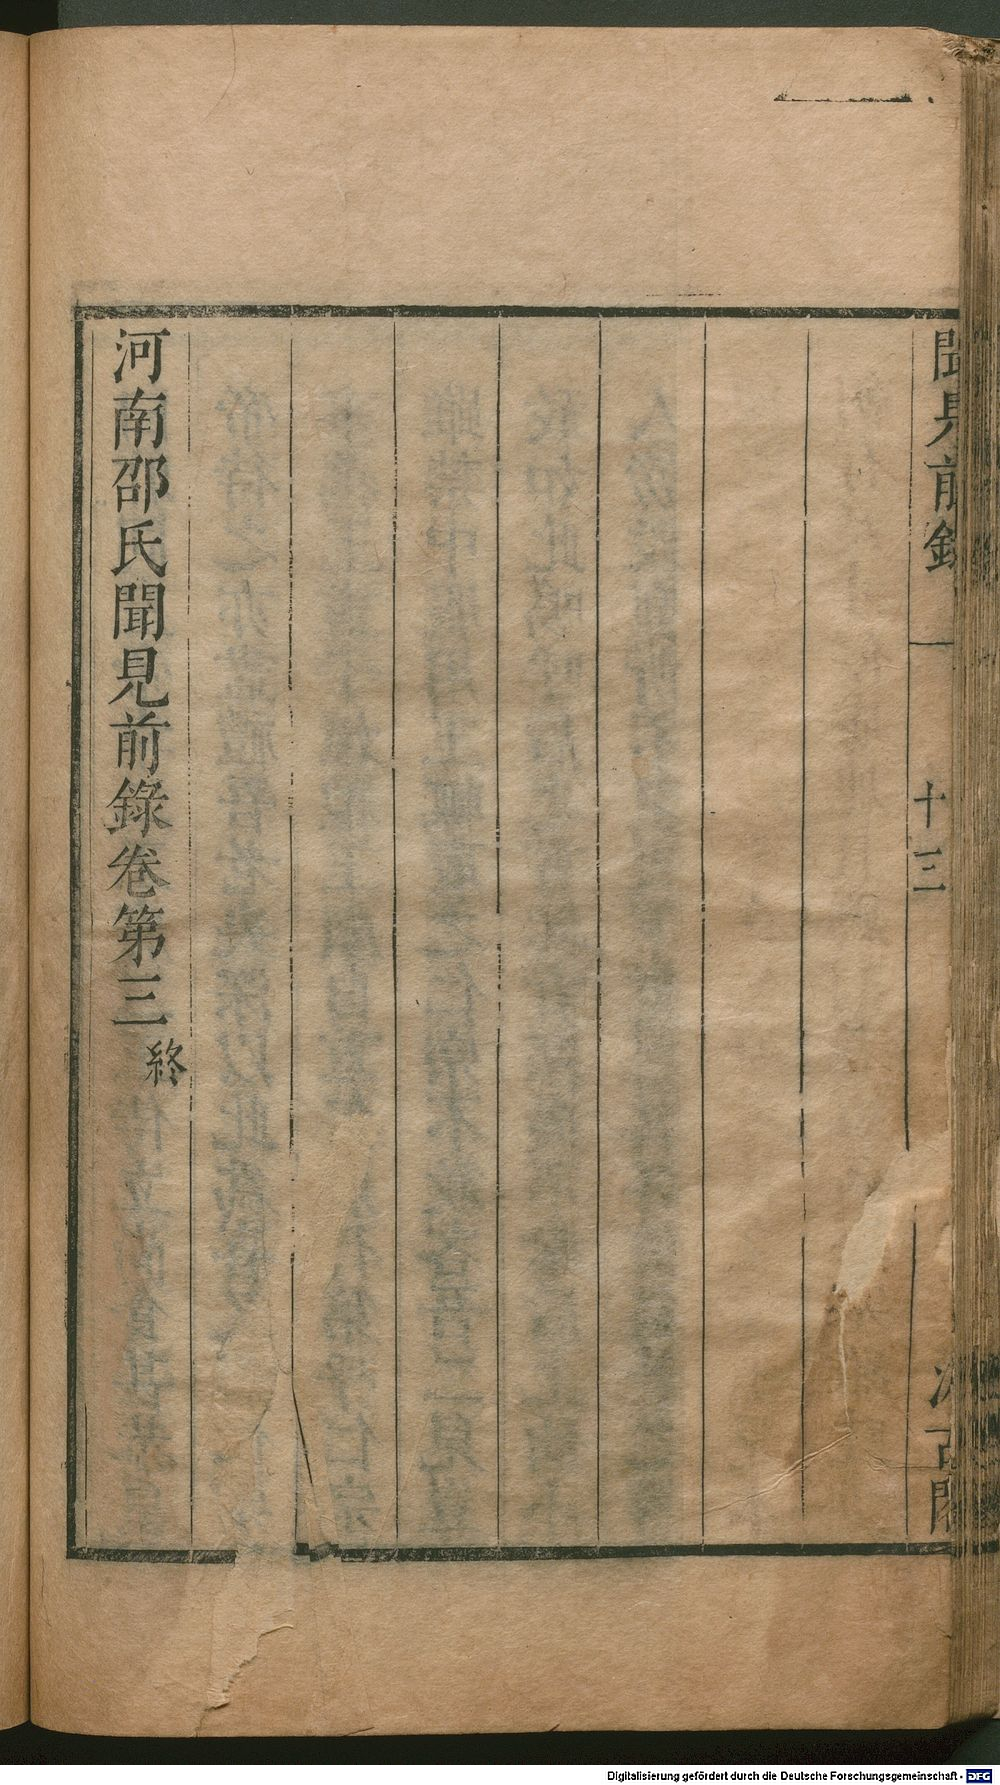 聞見前錄
十三
汲古閣
河南邵氏聞見前錄卷第三終
Digitalisierung gefördert durch die Deutsche Forschungsgemeinschaft - DFG